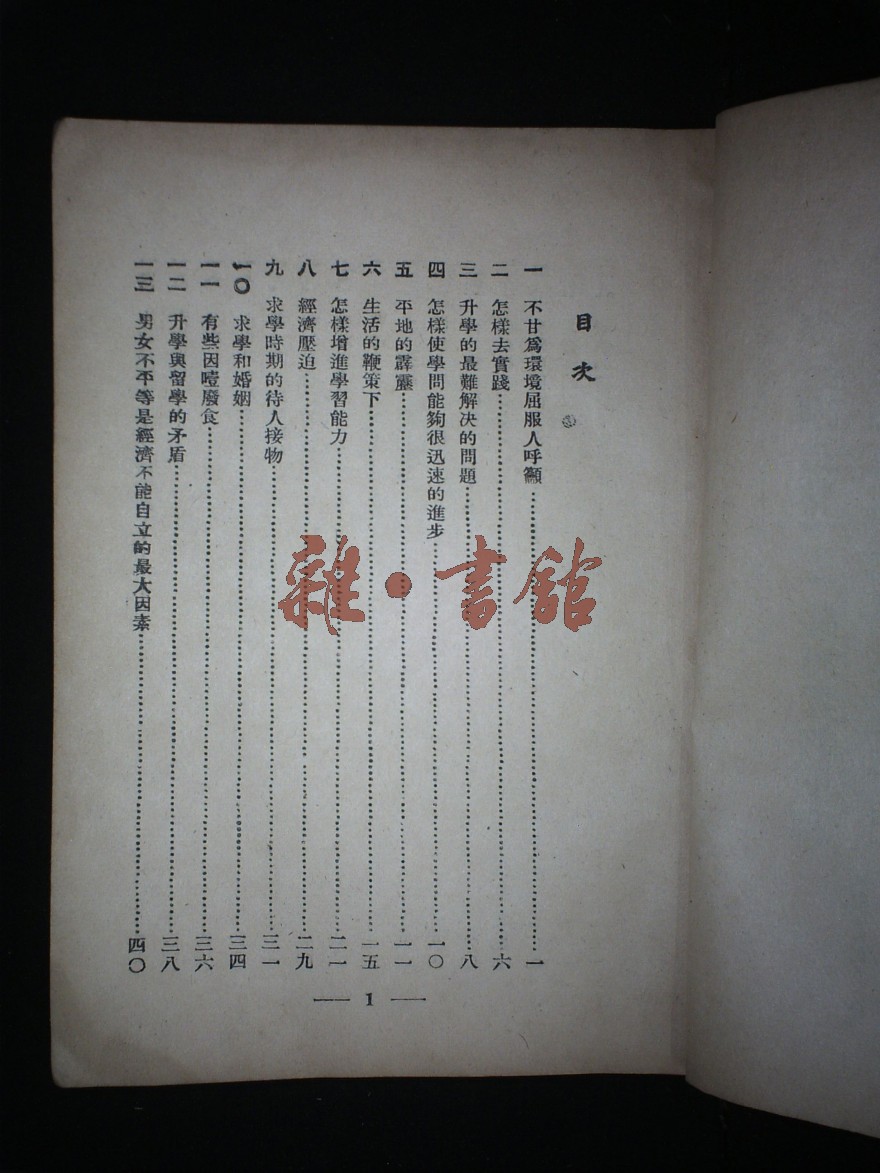 目次
一 不甘爲環境屈服人呼籲……一
二 怎樣去實踐……六
三 升學的最難解決的問題……八
四 怎樣使學問能夠很迅速的進步……一〇
五 平地的霹靂……一一
六 生活的鞭策下……一五
七 怎樣增進學習能力……二一
八 經濟壓迫……二九
九 求學時期的待人接物……三一
一〇 求學和婚姻……三四
一一 有些因噎廢食……三六
一二 升學與留學的矛盾……三八
一三 男女不平等是經濟不能自立的最大因素……四〇
— 1 —
雜·書館